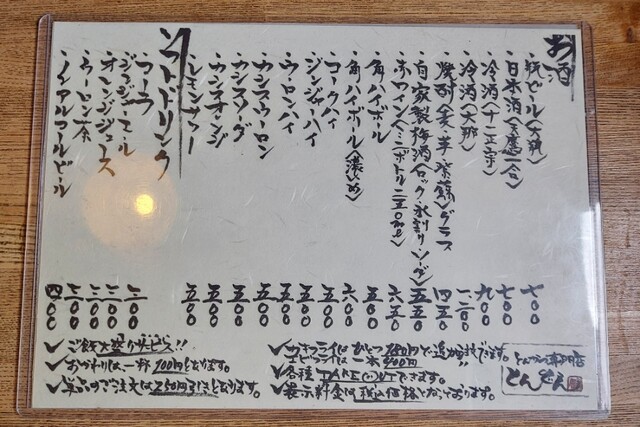 お酒
・瓶ビール(大瓶) 七〇〇
・日本酒(天鷹一合) 七〇〇
・冷酒(十二文字) 九〇〇
・冷酒(大那) 一二〇〇
・焼酎(麦・芋・紫蘇)グラス 四五〇
・自家製梅酒(ロック・水割り・ソーダ) 五五〇
・赤ワイン(ミニボトル二五〇ml) 六五〇
・角ハイボール 五〇〇
・角ハイボール(濃いめ) 六〇〇
・コークハイ 五〇〇
・ジンジャーハイ 五〇〇
・ウーロンハイ 五〇〇
・カシスウーロン 五〇〇
・カシスソーダ 五〇〇
・カシスオレンジ 五〇〇
・レモンサワー 五〇〇
ソフトドリンク
・コーラ 三〇〇
・ジンジャーエール 三〇〇
・オレンジジュース 三〇〇
・ウーロン茶 三〇〇
・ノンアルコールビール 四〇〇
✓ご飯大盛りサービス!!
✓おかわりは一杯100円となります。
✓単品のご注文は250円引きとなります。
✓カキフライはひとつ280円で追加できます。
エビフライは一本400円
✓各種TAKE OUTできます。
✓表示料金は税込価格となっております。
とんかつ専門店
とんきん